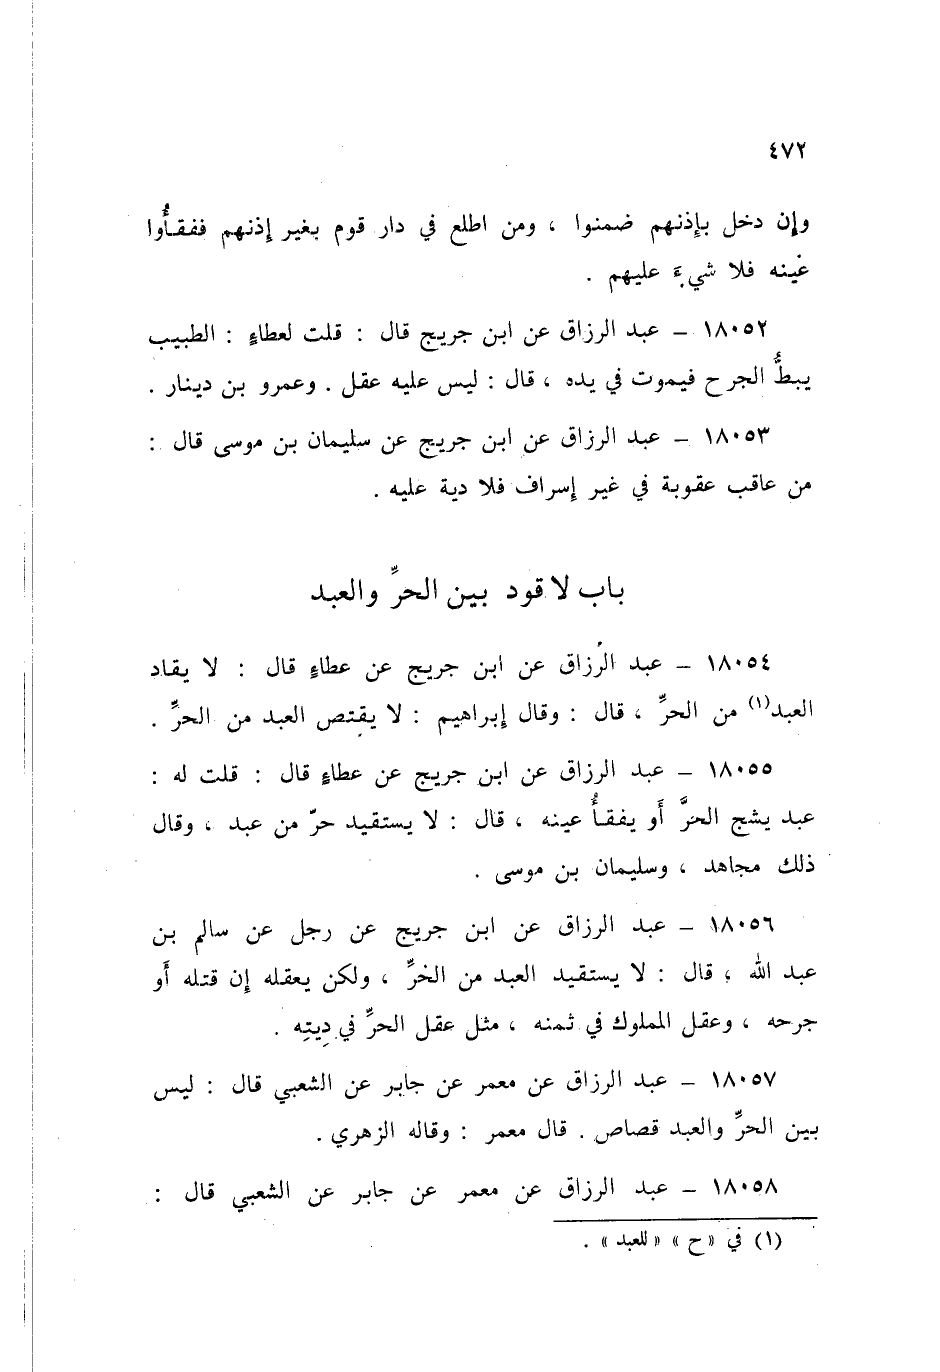 ٤٧٢
وإن دخل بإذنهم ضمنوا ، ومن اطلع في دار قوم بغير إذنهم ففقأُوا
عينه فلا شيءَ عليهم .
١٨٠٥٢ – عبد الرزاق عن ابن جريج قال : قلت لعطاءٍ : الطبيب
يبطُّ الجرح فيموت في يده ، قال : ليس عليه عقل . وعمرو بن دينار .
١٨٠٥٣ – عبد الرزاق عن ابن جريج عن سليمان بن موسى قال :
من عاقب عقوبة في غير إسراف فلا دية عليه .
باب لا قود بين الحرِّ والعبد
١٨٠٥٤ – عبد الرزاق عن ابن جريج عن عطاءٍ قال : لا يقاد
العبد(١) من الحرِّ ، قال : وقال إبراهيم : لا يقتص العبد من الحرِّ .
١٨٠٥٥ – عبد الرزاق عن ابن جريج عن عطاءٍ قال : قلت له :
عبد يشج الحرَّ أَو يفقأُ عينه ، قال : لا يستقيد حرّ من عبد ، وقال
ذلك مجاهد ، وسليمان بن موسى .
١٨٠٥٦ – عبد الرزاق عن ابن جريج عن رجل عن سالم بن
عبد الله ، قال : لا يستقيد العبد من الحرِّ ، ولكن يعقله إن قتله أَو
جرحه ، وعقل المملوك في ثمنه ، مثل عقل الحرِّ في دِيتِه .
١٨٠٥٧ – عبد الرزاق عن معمر عن جابر عن الشعبي قال : ليس
بين الحرِّ والعبد قصاص . قال معمر : وقاله الزهري .
١٨٠٥٨ – عبد الرزاق عن معمر عن جابر عن الشعبي قال :
(١) في «ح» «للعبد» .